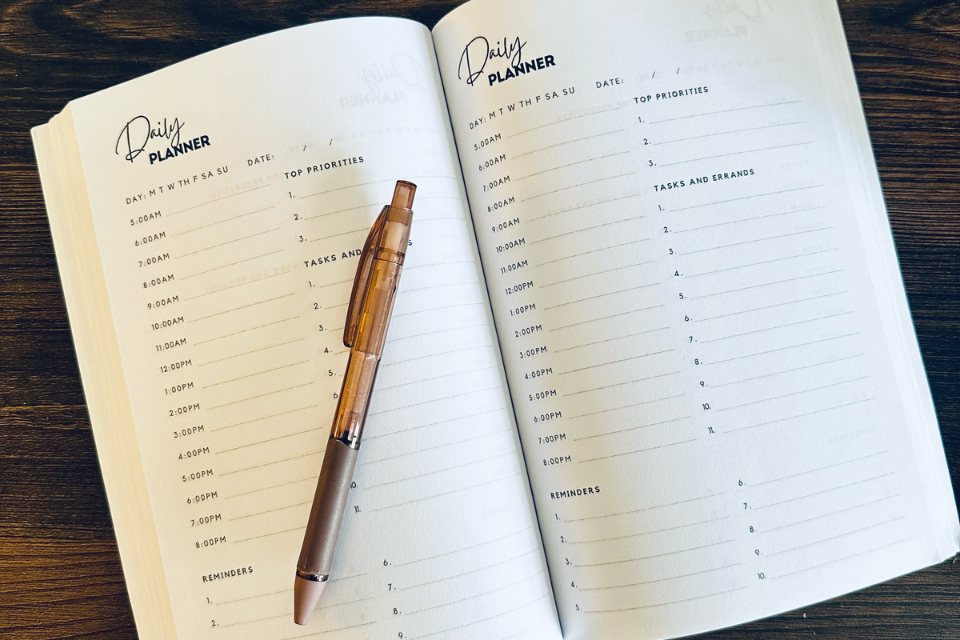 Daily
PLANNER
DAY: M T W TH F SA SU DATE: / /
5:00AM
6:00AM
7:00AM
8:00AM
9:00AM
10:00AM
11:00AM
12:00PM
1:00PM
2:00PM
3:00PM
4:00PM
5:00PM
6:00PM
7:00PM
8:00PM
TOP PRIORITIES
1.
2.
3.
TASKS AND
1.
2.
3.
4.
5.
6
11.
REMINDERS
1.
2.
6.
7.
8.
9.
Daily
PLANNER
DAY: M T W TH F SA SU DATE: / /
5:00AM
6:00AM
7:00AM
8:00AM
9:00AM
10:00AM
11:00AM
12:00PM
1:00PM
2:00PM
3:00PM
4:00PM
5:00PM
6:00PM
7:00PM
8:00PM
TOP PRIORITIES
1.
2.
3.
TASKS AND ERRANDS
1.
2.
3.
4.
5.
6.
7.
8.
9.
10.
11.
REMINDERS
1.
2.
3.
4.
5.
6.
7.
8.
9.
10.